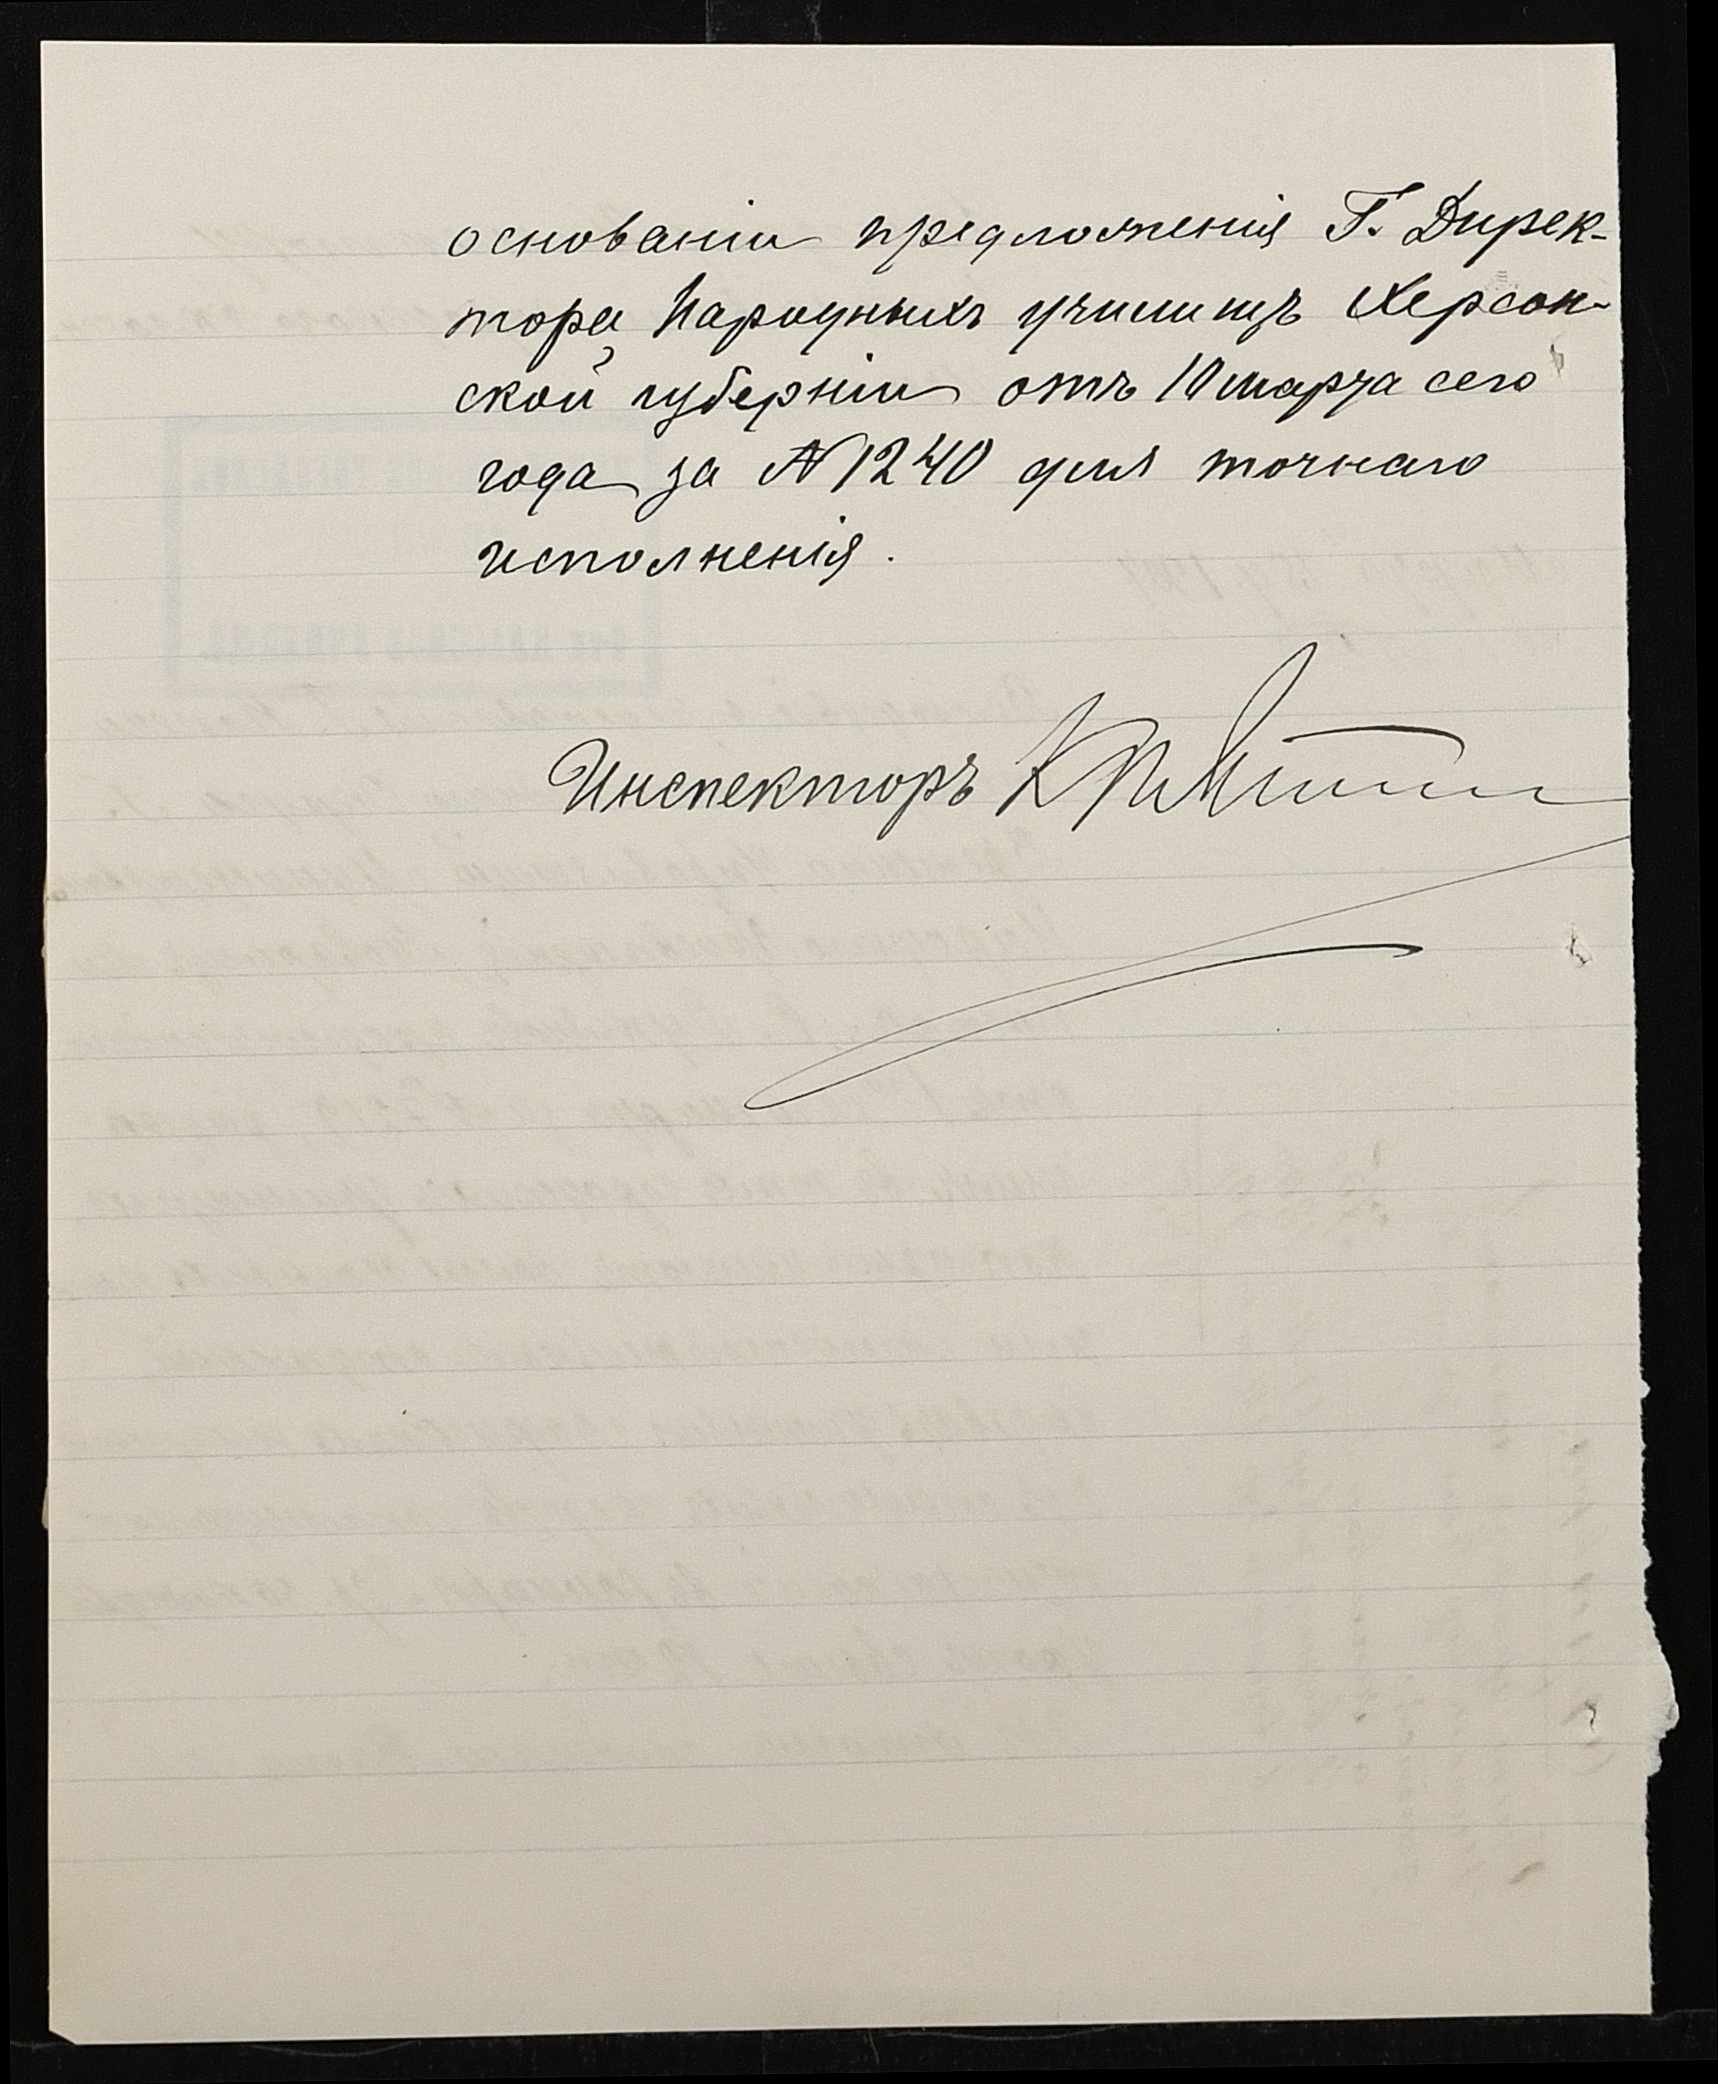 основаніи предложенія Г. Дирек-
тора Народныхъ училищъ Херсон-
ской губерніи отъ 10 марта сего
года за № 1240 для точнаго
исполненія.
Инспекторъ